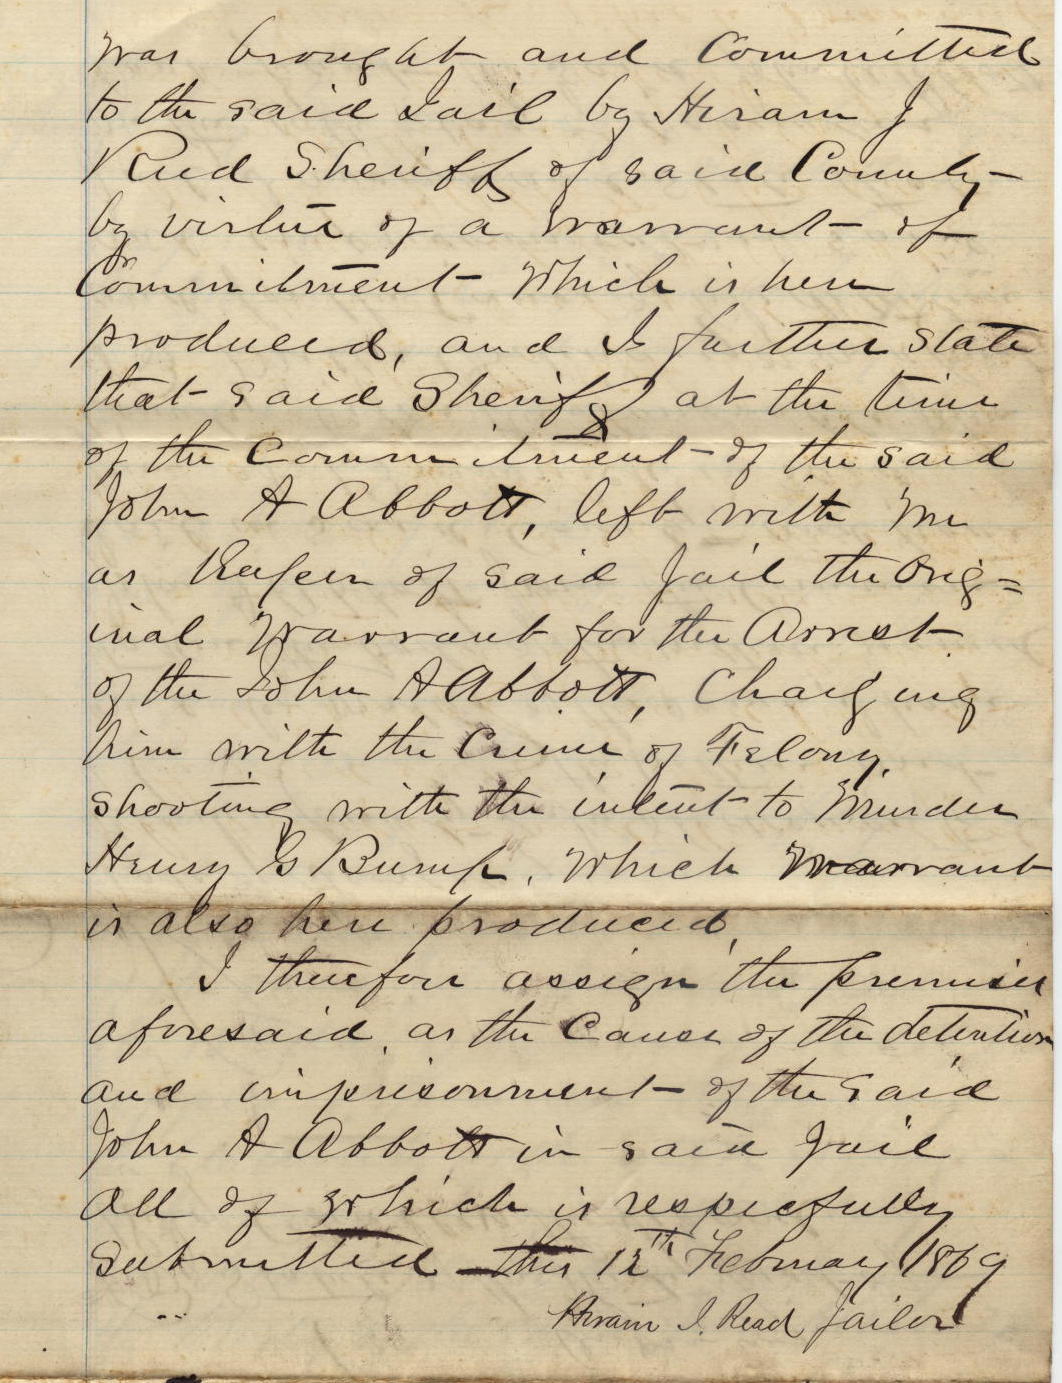 was brought and Committed
to the said Jail by Hiram J
Reed Sheriff of said County
by virtue of a Warrant of
Commitment Which is here
produced, and I further State
that said Sheriff at the time
of the Commitment of the said
John A Abbott, left with me
as Keeper of said Jail the Orig=
inal Warrant for the Arrest
of the John A Abbott, Charging
him with the Crime of Felony,
shooting with the intent to Murder
Henry G Bump, Which Warrant
is also here produced,
I therefore assign the premises
aforesaid, as the Cause of the detention
and imprisonment of the said
John A Abbott in said Jail
All of Which is respecfully
Submitted this 12th February 1869
Hiram J. Read Jailor